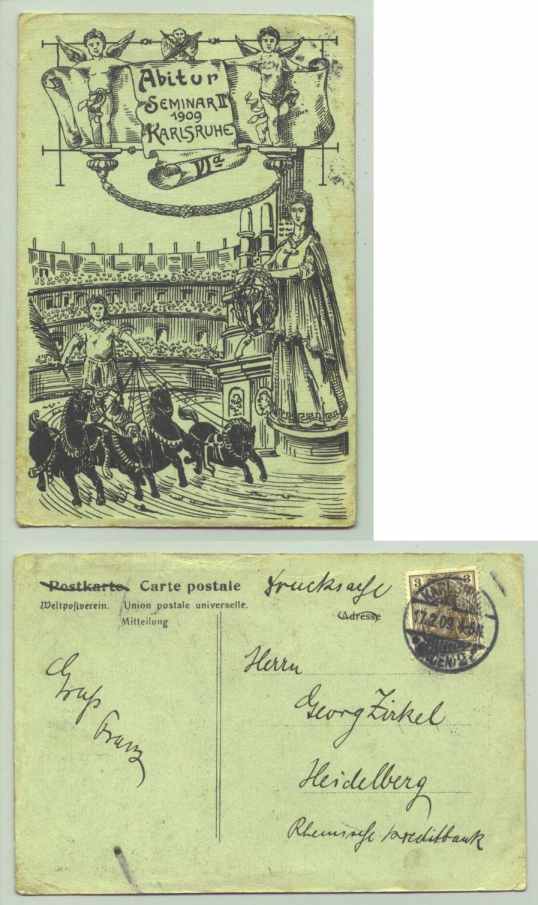 Abitur
SEMINAR II
1909
KARLSRUHE
VIa
Postkarte. Carte postale
Weltpostverein. Union postale universelle.
Mitteilung
Drucksache
Adresse
3 3
KARLSRUHE
17.2.09. 4-5N
Gruß
Franz
Herrn
Georg Zirkel
Heidelberg
Rheinische Kreditbank